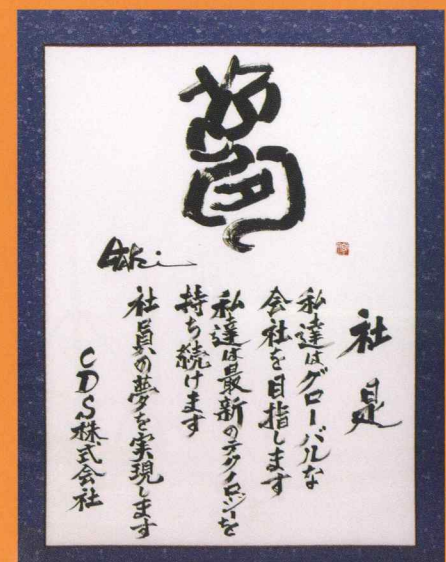 夢
社是
私達はグローバルな
会社を目指します
私達は最新のテクノロジーを
持ち続けます
社員の夢を実現します
CDS株式会社